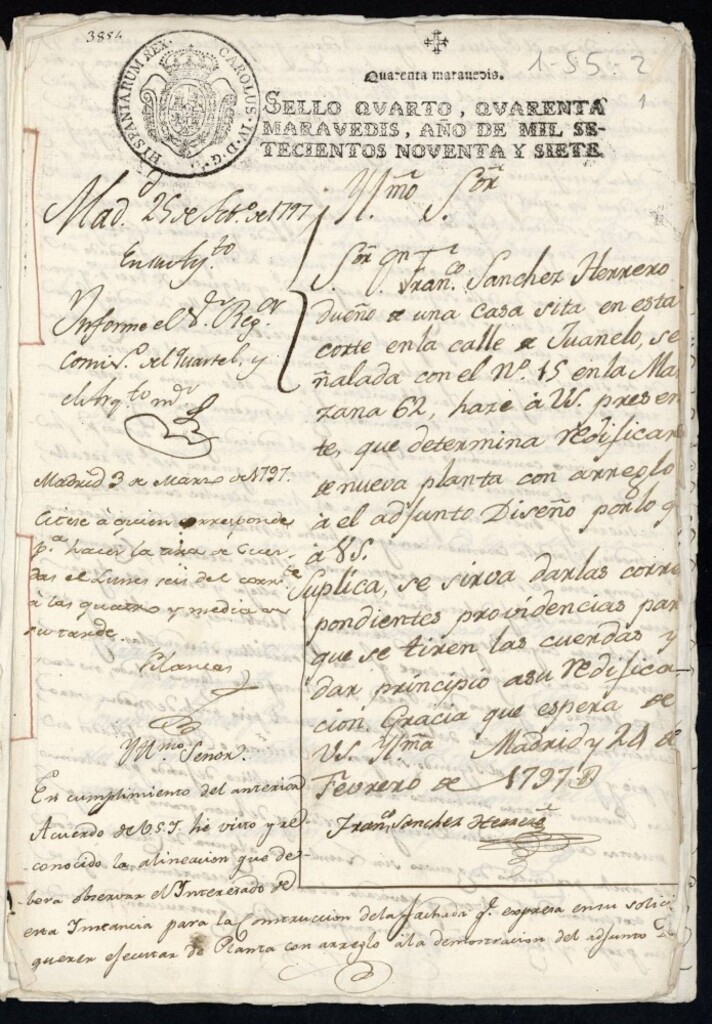 3854
HISPANIARUM REX. CAROLUS. IV. D. G.
Quarenta maravedis.
1-55-2
1
SELLO QVARTO, QVARENTA
MARAVEDIS, AÑO DE MIL SE-
TECIENTOS NOVENTA Y SIETE.
Yll.mo S.or
S.or
Fran.co Sanchez Herrero
dueño de una casa sita en esta
corte en la calle de Juanelo, se
ñalada con el N.º 15 en la Man
zana 62, haze à VS. presen
te, que determina redificar
de nueva planta con arreglo
à el adjunto Diseño por lo q
à VS.
Suplica, se sirva dar las corres
pondientes providencias para
que se tiren las cuerdas y
dar principio a su redifica-
cion Gracia que espera de
VS. Yll.ma Madrid y 24 de
Febrero de 1797
Fran.co Sanchez Herrero
Mad. 25 de Feb.o de 1797
En su Ay.to
Informe el S.r Reg.or
Comis.o del Quartel, y
el Arq.to m.or
Madrid 3 de Marzo de 1797.
Citese à quien corresponde
p.a hacer la tira de Cuer-
das el Lunes seis del corr.te
à las quatro y media de
su tarde.
Blancas
Yll.mo Señor.
En cumplimiento del anterior
Acuerdo de V.S.I. he visto y re
conocido la alineacion que de-
bera observar el Interesado de
esta Instancia para la Construccion de la fachada q.e expresa en su solici
querer ejecutar de Planta con arreglo à la demostracion del adjunto